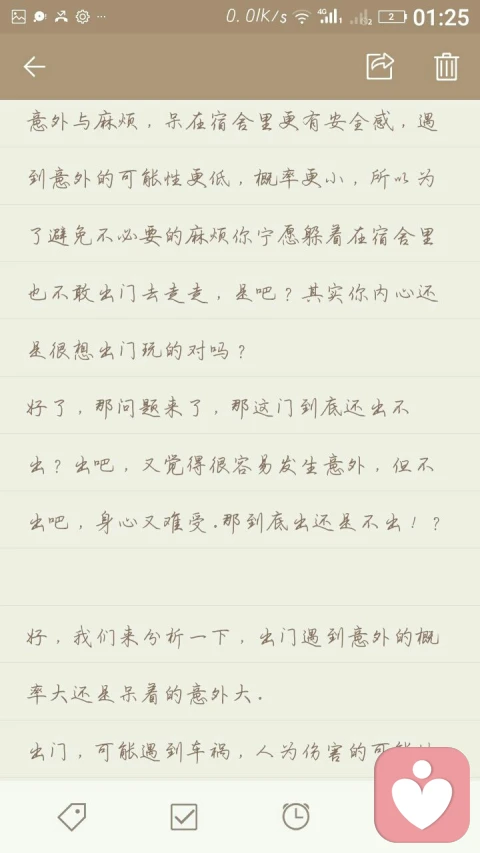 0.01K/s 4G 1 2 2 01:25
意外与麻烦，呆在宿舍里更有安全感，遇
到意外的可能性更低，概率更小，所以为
了避免不必要的麻烦你宁愿躲着在宿舍里
也不敢出门去走走，是吧？其实你内心还
是很想出门玩的对吗？
好了，那问题来了，那这门到底还出不
出？出吧，又觉得很容易发生意外，但不
出吧，身心又难受.那到底出还是不出！？
好，我们来分析一下，出门遇到意外的概
率大还是呆着的意外大.
出门，可能遇到车祸，人为伤害的可能